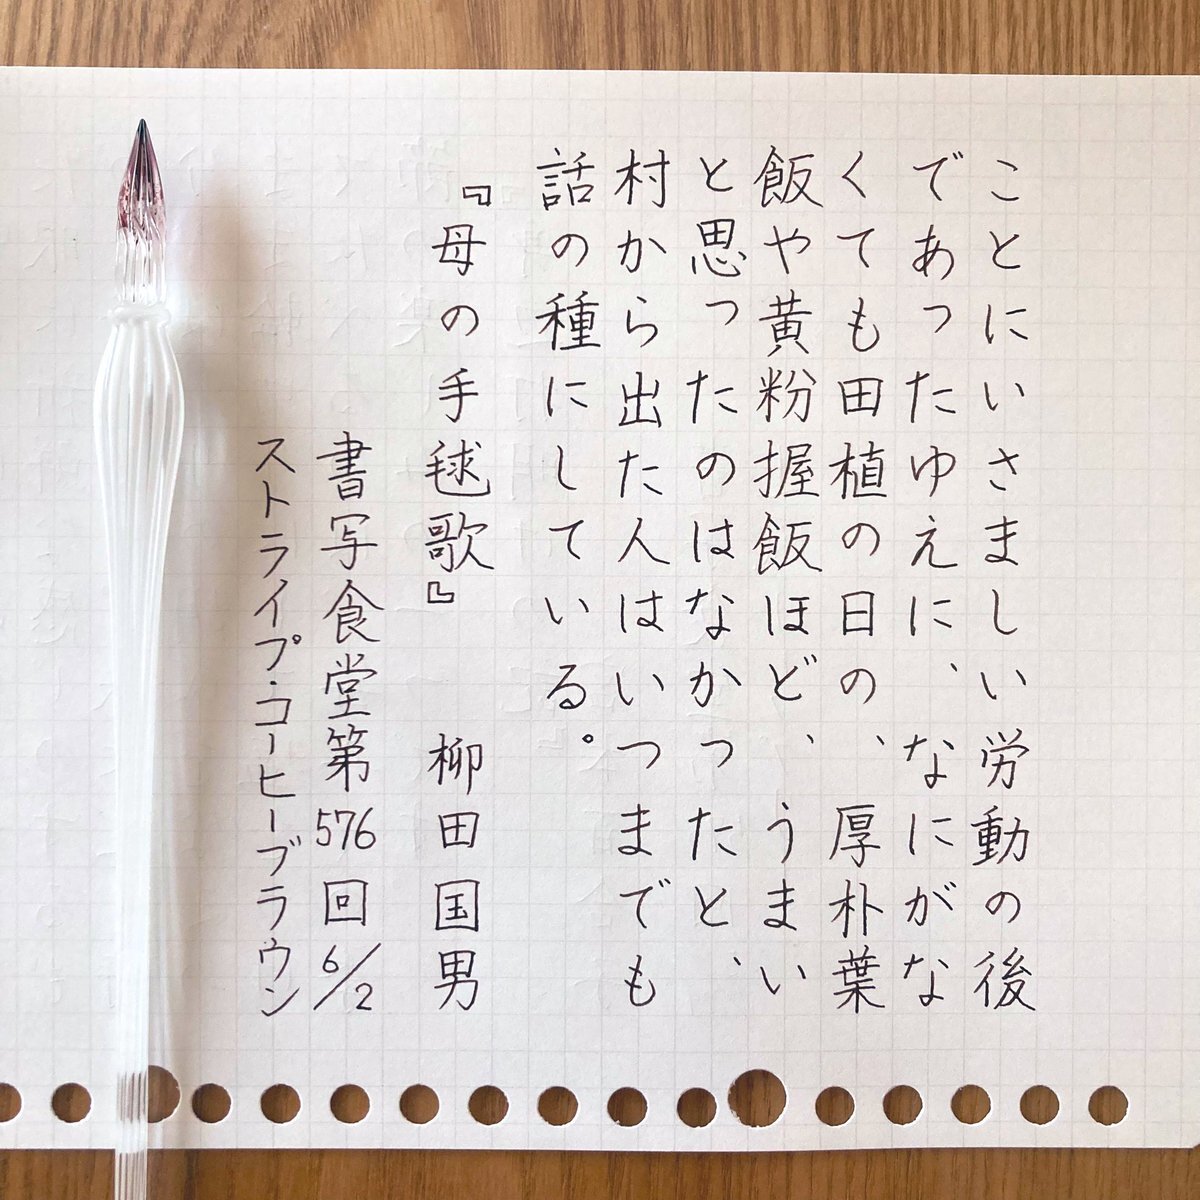 ことにいさましい労動の後
であったゆえに、なにがな
くても田植の日の、厚朴葉
飯や黄粉握飯ほど、うまい
と思ったのはなかったと、
村から出た人はいつまでも
話の種にしている。
『母の手毬歌』 柳田国男
書写食堂第576回 6/2
ストライプ・コーヒーブラウン